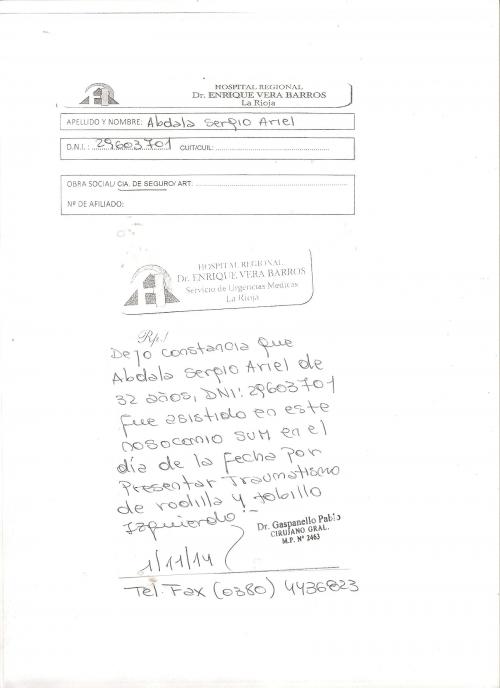 HOSPITAL REGIONAL
Dr. ENRIQUE VERA BARROS
La Rioja
APELLIDO Y NOMBRE: Abdala Sergio Ariel
D.N.I.: 29603701 CUIT/CUIL:
OBRA SOCIAL/ CIA. DE SEGURO/ ART:
Nº DE AFILIADO:
HOSPITAL REGIONAL
Dr. ENRIQUE VERA BARROS
Servicio de Urgencias Medicas
La Rioja
Rp./
Dejo constancia que
Abdala Sergio Ariel de
32 años, DNI: 29603701
fue asistido en este
nosocomio SUM en el
día de la fecha por
Presentar Traumatismo
de rodilla y tobillo
Izquierdo.-
Dr. Gaspanello Pablo
CIRUJANO GRAL.
M.P. Nº 2463
1/11/14
Tel. Fax (0380) 4436823